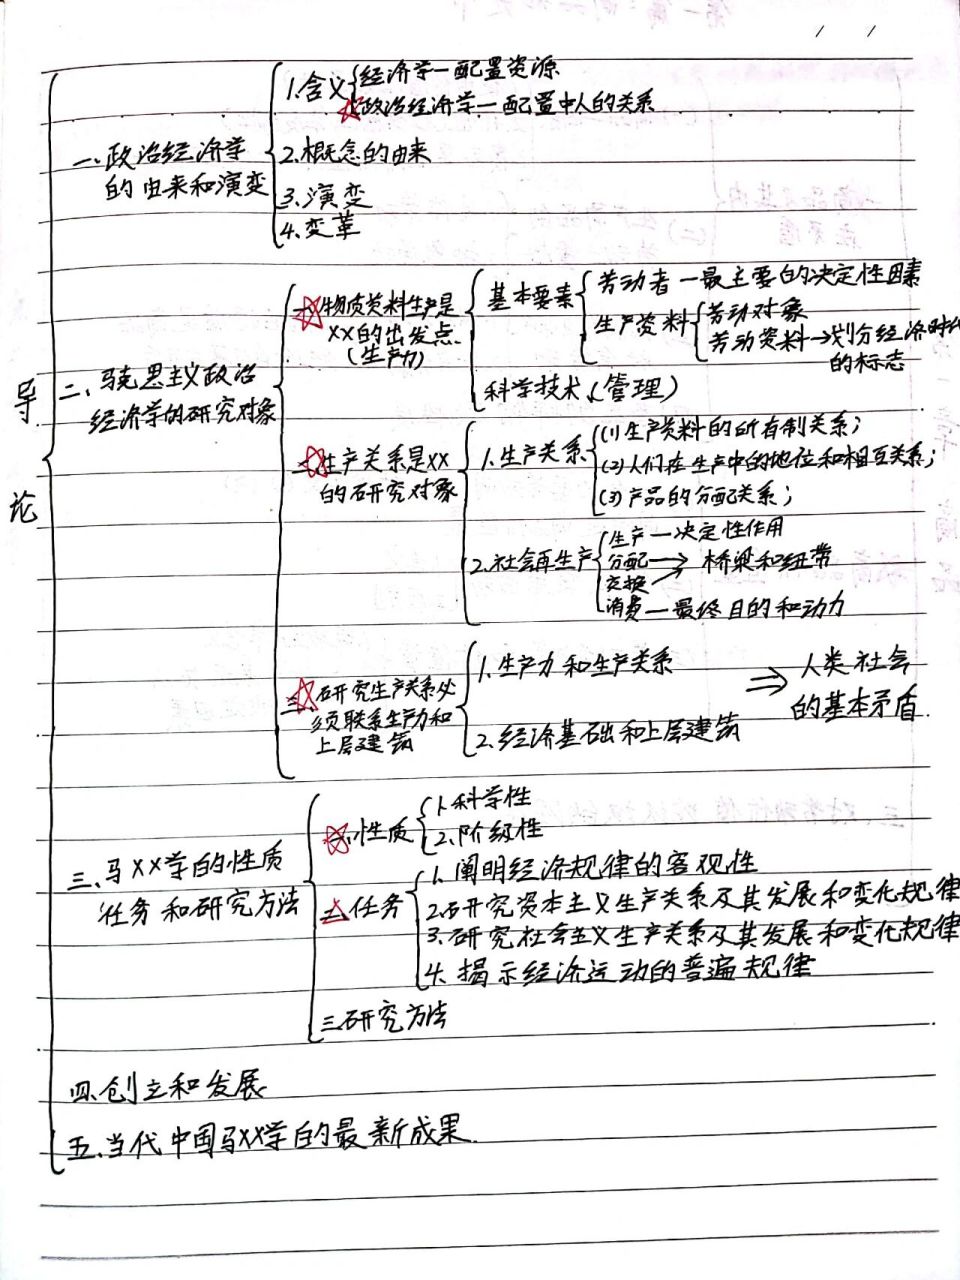 导论
一、政治经济学
的由来和演变
1.含义
经济学一配置资源
政治经济学一配置中人的关系
2.概念的由来
3.演变
4.变革
二、马克思主义政治
经济学的研究对象
一、物质资料生产是
XX的出发点
(生产力)
基本要素
劳动者一最主要的决定性因素
生产资料
劳动对象
劳动资料→划分经济时代
的标志
科学技术、(管理)
二、生产关系是XX
的研究对象
1.生产关系
(1)生产资料的所有制关系;
(2)人们在生产中的地位和相互关系;
(3)产品的分配关系;
2.社会再生产
生产一决定性作用
分配→
交换→
桥梁和纽带
消费一最终目的和动力
三、研究生产关系必
须联系生产力和
上层建筑
1.生产力和生产关系
2.经济基础和上层建筑
⇒人类社会
的基本矛盾
三、马XX学的性质
任务和研究方法
一、性质
1.科学性
2.阶级性
二、任务
1.阐明经济规律的客观性
2.研究资本主义生产关系及其发展和变化规律
3.研究社会主义生产关系及其发展和变化规律
4.揭示经济运动的普遍规律
三.研究方法
四.创立和发展
五.当代中国马XX学的最新成果.